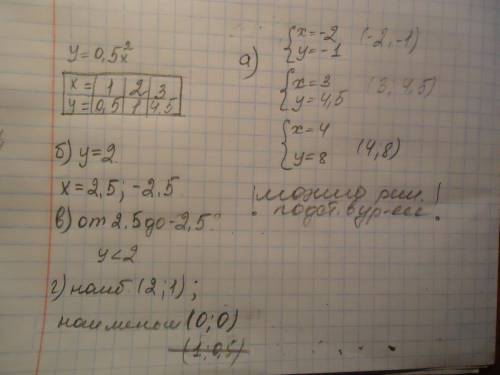 y=0,5x²
x= 1 2 3
y= 0,5 1 4,5
б) y=2
x=2,5; -2.5
в) от 2.5 до -2,5
y<2
г) наиб. (2;1);
наименьш (0;0)
(1;0,5)
а) {x=-2 (-2,-1)
y=-1
{x=3 (3; 4,5)
y=4,5
{x=4
y=8 (4,8)
! можно !
подст. в ур-